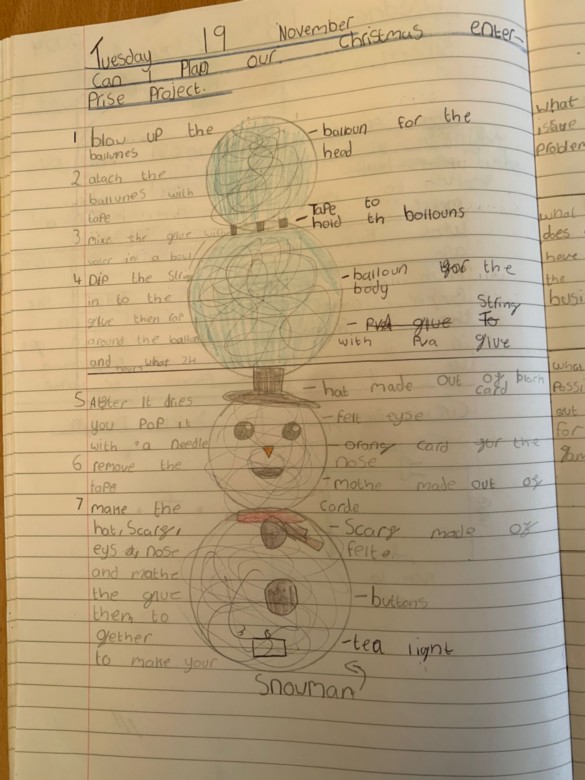 Tuesday 19 November
Can I Plan our Christmas enter-
Prise Project.
1 blow up the
ballunes
2 atach the
ballunes with
tape
3 mixe the glue with
water in a bowl
4 Dip the
in to the
glue then
around the
and what 24
5 After it dries
you PoP it
with a needle
6 remove the
tape
7 make the
hat, Scarf,
eys, nose
and mothe
the glue
them to
gether
to make your
balloun for the
head
Tape to
hold th bollouns
balloun for the
body
String
Pva glue To
with Pva glue
hat made out of black
card
felt eyse
orang card for the
nose
mothe made out of
corde
Scarf made of
felt.
buttons
tea light
Snowman
what
issue
problem
what
does
have
the
busi
what
Possi
out
for